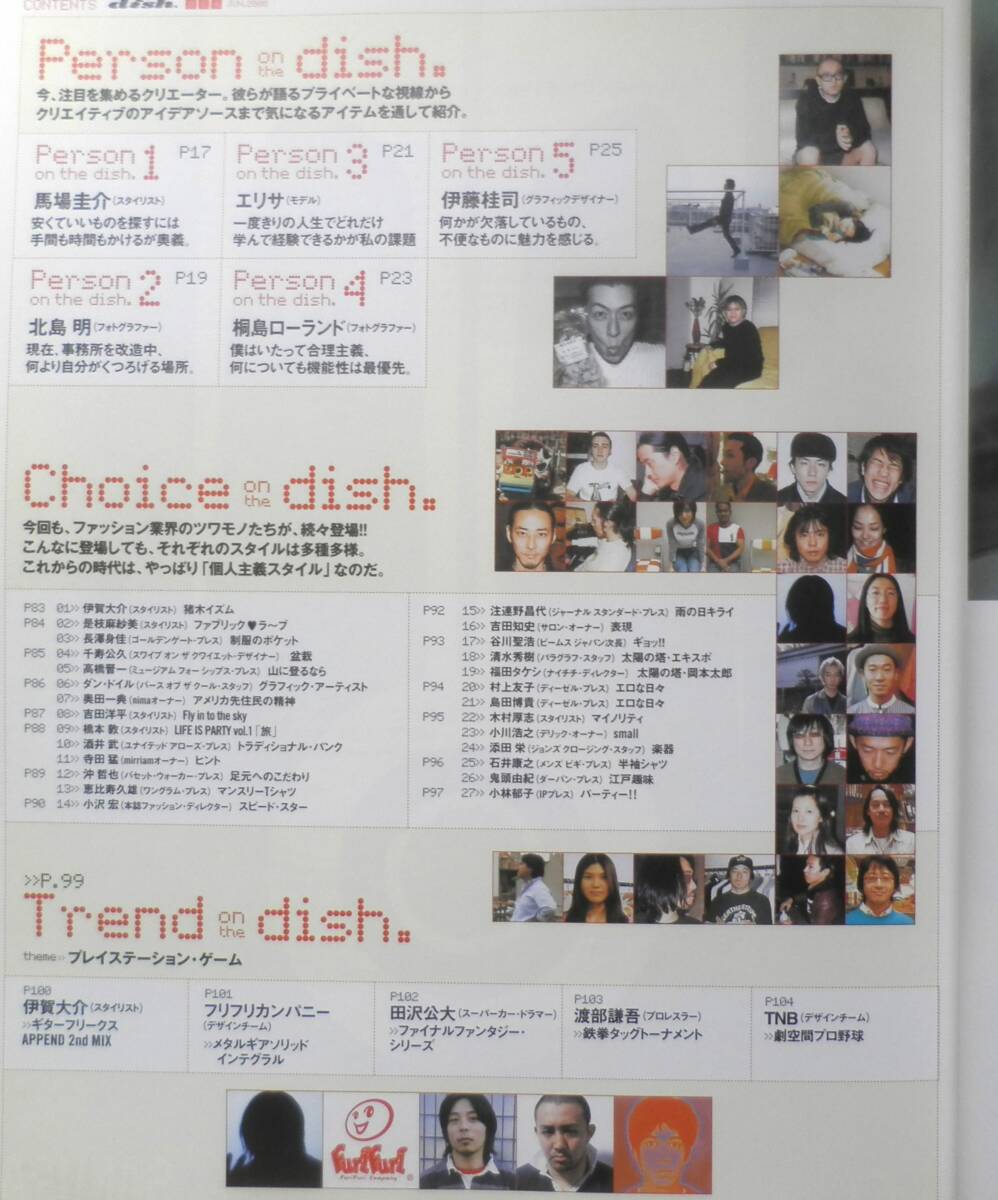 CONTENTS dish. JUN.2000
Person on the dish.
今、注目を集めるクリエーター。彼らが語るプライベートな視線から
クリエイティブのアイデアソースまで気になるアイテムを通して紹介。
Person 1 on the dish. P17
馬場圭介(スタイリスト)
安くていいものを探すには
手間も時間もかけるが奥義。
Person 3 on the dish. P21
エリサ(モデル)
一度きりの人生でどれだけ
学んで経験できるかが私の課題
Person 5 on the dish. P25
伊藤桂司(グラフィックデザイナー)
何かが欠落しているもの、
不便なものに魅力を感じる。
Person 2 on the dish. P19
北島 明(フォトグラファー)
現在、事務所を改造中、
何より自分がくつろげる場所。
Person 4 on the dish. P23
桐島ローランド(フォトグラファー)
僕はいたって合理主義、
何についても機能性は最優先。
Choice on the dish.
今回も、ファッション業界のツワモノたちが、続々登場!!
こんなに登場しても、それぞれのスタイルは多種多様。
これからの時代は、やっぱり「個人主義スタイル」なのだ。
P83 01>> 伊賀大介(スタイリスト) 猪木イズム
P84 02>> 是枝麻紗美(スタイリスト) ファブリック♥ラ〜ブ
03>> 長澤身佳(ゴールデンゲート・プレス) 制服のポケット
P85 04>> 千寿公久(スワイプ オン ザ クワイエット・デザイナー) 盆栽
05>> 高橋晋一(ミュージアム フォー シップス・プレス) 山に登るなら
P86 06>> ダン・ドイル(バース オブ ザ クール・スタッフ) グラフィック・アーティスト
07>> 奥田一典(nimaオーナー) アメリカ先住民の精神
P87 08>> 吉田洋平(スタイリスト) Fly in to the sky
P88 09>> 橋本 敦(スタイリスト) LIFE IS PARTY vol.1「旅」
10>> 酒井 武(ユナイテッド アローズ・プレス) トラディショナル・パンク
11>> 寺田 猛(mirriamオーナー) ヒント
P89 12>> 沖 哲也(バセット・ウォーカー・プレス) 足元へのこだわり
13>> 恵比寿久雄(ワングラム・プレス) マンスリーTシャツ
P90 14>> 小沢 宏(本誌ファッション・ディレクター) スピード・スター
P92 15>> 注連野昌代(ジャーナル スタンダード・プレス) 雨の日キライ
16>> 吉田知史(サロン・オーナー) 表現
P93 17>> 谷川聖浩(ビームス ジャパン次長) ギョッ!!
18>> 清水秀樹(パラグラフ・スタッフ) 太陽の塔・エキスポ
19>> 福田タケシ(ナイチチ・ディレクター) 太陽の塔・岡本太郎
P94 20>> 村上友子(ディーゼル・プレス) エロな日々
21>> 島田博貴(ディーゼル・プレス) エロな日々
P95 22>> 木村厚志(スタイリスト) マイノリティ
23>> 小川浩之(デリック・オーナー) small
24>> 添田 栄(ジョンズ クロージング・スタッフ) 楽器
P96 25>> 石井康之(メンズ ビギ・プレス) 半袖シャツ
26>> 鬼頭由紀(ダーバン・プレス) 江戸趣味
P97 27>> 小林郁子(IPプレス) パーティー!!
>>P.99
Trend on the dish.
theme>> プレイステーション・ゲーム
P100
伊賀大介(スタイリスト)
>>ギターフリークス
APPEND 2nd MIX
P101
フリフリカンパニー
(デザインチーム)
>>メタルギアソリッド
インテグラル
P102
田沢公大(スーパーカー・ドラマー)
>>ファイナルファンタジー・
シリーズ
P103
渡部謙吾(プロレスラー)
>>鉄拳タッグトーナメント
P104
TNB(デザインチーム)
>>劇空間プロ野球
FuriFuri
FuriFuri Company